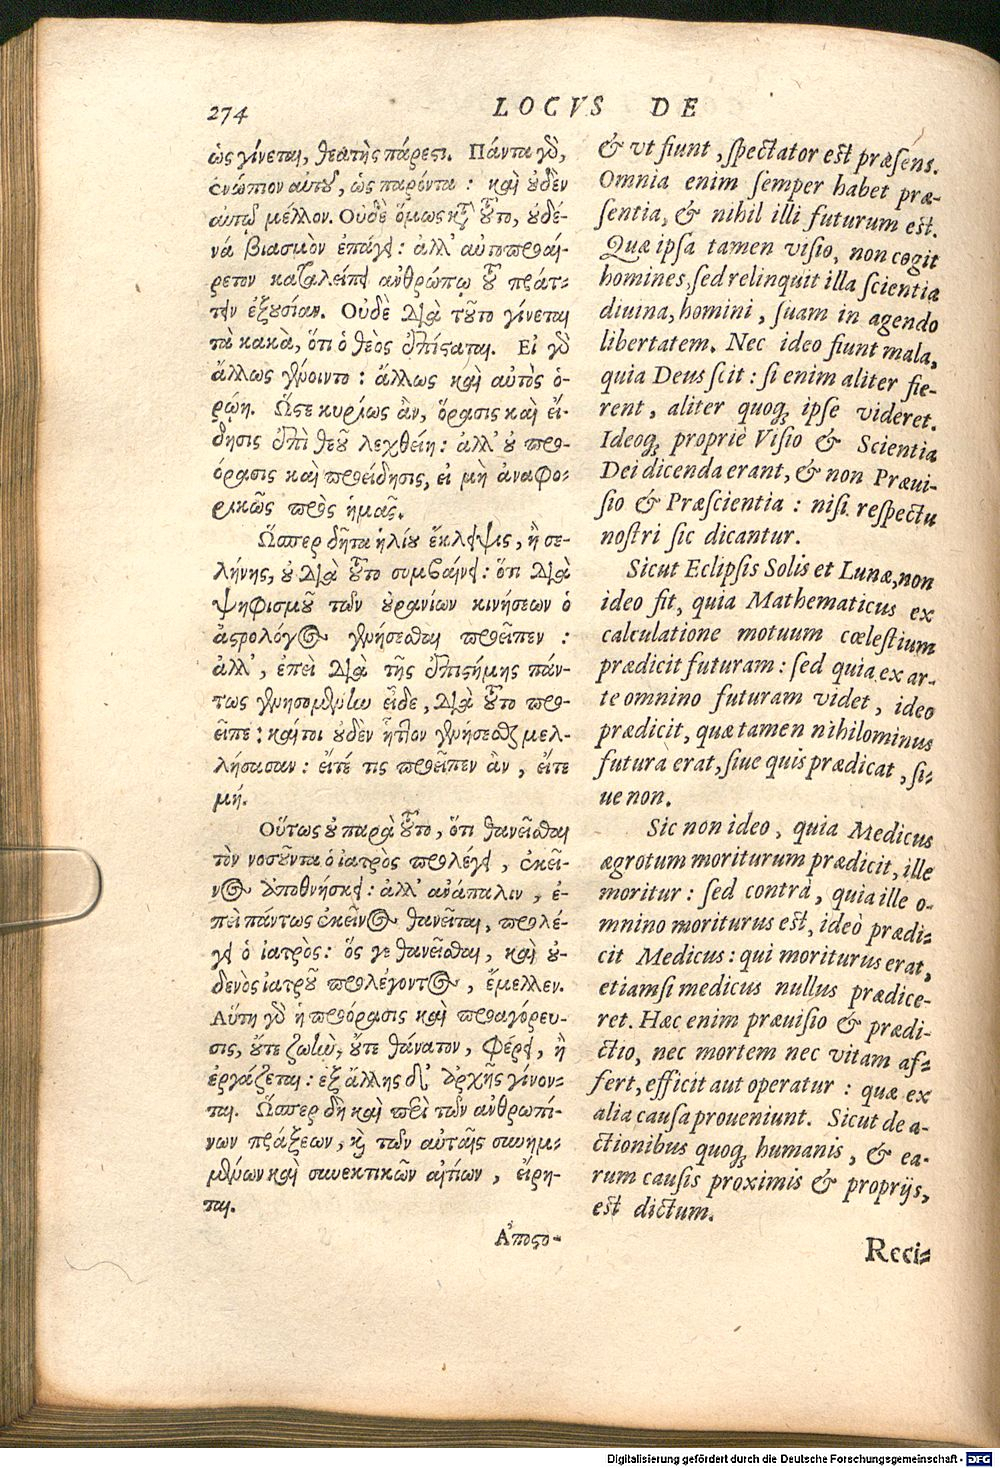 274
LOCVS DE
ὡς γίνεται, θεατὴς πάρεστι. Πάντα γὸ,
ἐνώπιον αὐτοῦ, ὡς παρόντα : καὶ οὐδὲν
αὐτῷ μέλλον. Οὐδὲ ὅμως κỳ τοῦτο, οὐδέ-
να βιασμὸν ἐπάγει : ἀλλ' αὐτοπροαί-
ρετον καταλείπει ἀνθρώπῳ τοῦ πράτ-
τειν ἐξουσίαν. Οὐδὲ διὰ τοῦτο γίνεται
τὰ κακὰ, ὅτι ὁ θεὸς ἐπίσταται. Εἰ γὸ
ἄλλως γένοιντο : ἄλλως καὶ αὐτὸς ὁ-
ρῴη. Ὥστε κυρίως ἂν, ὅρασις καὶ εἴ-
δησις ἐπὶ θεοῦ λεχθείη : ἀλλ' οὐ προ-
όρασις καὶ προείδησις, εἰ μὴ ἀναφο-
ρικῶς πρὸς ἡμᾶς.
Ὥσπερ δῆτα ἡλίου ἔκλειψις, ἢ σε-
λήνης, οὐ διὰ τοῦτο συμβαίνει : ὅτι διὰ
ψηφισμοῦ τῶν οὐρανίων κινήσεων ὁ
ἀστρολόγος γενήσεσθαι προεῖπεν :
ἀλλ', ἐπεὶ διὰ τῆς ἐπιστήμης πάν-
τως γενησομένην εἶδε, διὰ τοῦτο προ-
εῖπε : καίτοι οὐδὲν ἧττον γενήσεσθαι μελ-
λήσασαν : εἴτέ τις προεῖπεν ἂν, εἴτε
μή.
Οὕτως οὐ παρὰ τοῦτο, ὅτι θανεῖσθαι
τὸν νοσοῦντα ὁ ἰατρὸς προλέγει, ἐκεῖ-
νος ἀποθνήσκει : ἀλλ' ἀνάπαλιν, ἐ-
πεὶ πάντως ἐκεῖνος θανεῖται, προλέ-
γει ὁ ἰατρὸς : ὅς γε θανεῖσθαι, καὶ οὐ-
δενὸς ἰατροῦ προλέγοντος, ἔμελλεν.
Αὕτη γὸ ἡ προόρασις καὶ προαγόρευ-
σις, οὔτε ζωὴν, οὔτε θάνατον, φέρει, ἢ
ἐργάζεται : ἐξ ἄλλης δι' ἀρχῆς γίνον-
ται. Ὥσπερ δὴ καὶ περὶ τῶν ἀνθρωπί-
νων πράξεων, κỳ τῶν αὐταῖς συνημ-
μένων καὶ συνεκτικῶν αἰτίων, εἴρη-
ται.
Ἀποστο-
& vt fiunt, spectator est præsens.
Omnia enim semper habet præ-
sentia, & nihil illi futurum est.
Quæ ipsa tamen visio, non cogit
homines, sed relinquit illa scientia
diuina, homini, suam in agendo
libertatem. Nec ideo fiunt mala,
quia Deus scit : si enim aliter fie-
rent, aliter quoq; ipse videret.
Ideoq; propriè Visio & Scientia
Dei dicenda erant, & non Præui-
sio & Præscientia : nisi respectu
nostri sic dicantur.
Sicut Eclipsis Solis et Lunæ, non
ideo fit, quia Mathematicus ex
calculatione motuum cœlestium
prædicit futuram : sed quia ex ar-
te omnino futuram videt, ideo
prædicit, quæ tamen nihilominus
futura erat, siue quis prædicat, si-
ue non.
Sic non ideo, quia Medicus
ægrotum moriturum prædicit, ille
moritur : sed contrà, quia ille o-
mnino moriturus est, ideò prædi-
cit Medicus : qui moriturus erat,
etiamsi medicus nullus prædice-
ret. Hæc enim præuisio & prædi-
ctio, nec mortem nec vitam af-
fert, efficit aut operatur : quæ ex
alia causa proueniunt. Sicut de a-
ctionibus quoq; humanis, & ea-
rum causis proximis & proprijs,
est dictum.
Reci-
Digitalisierung gefördert durch die Deutsche Forschungsgemeinschaft - DFG